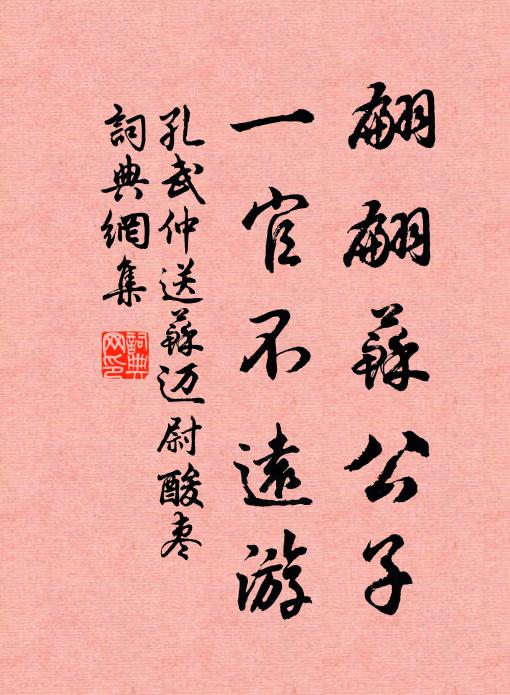 翩翩蘇公子
一官不遠游
孔武仲送蘇迈尉酸枣
詞典網集
詞典网印